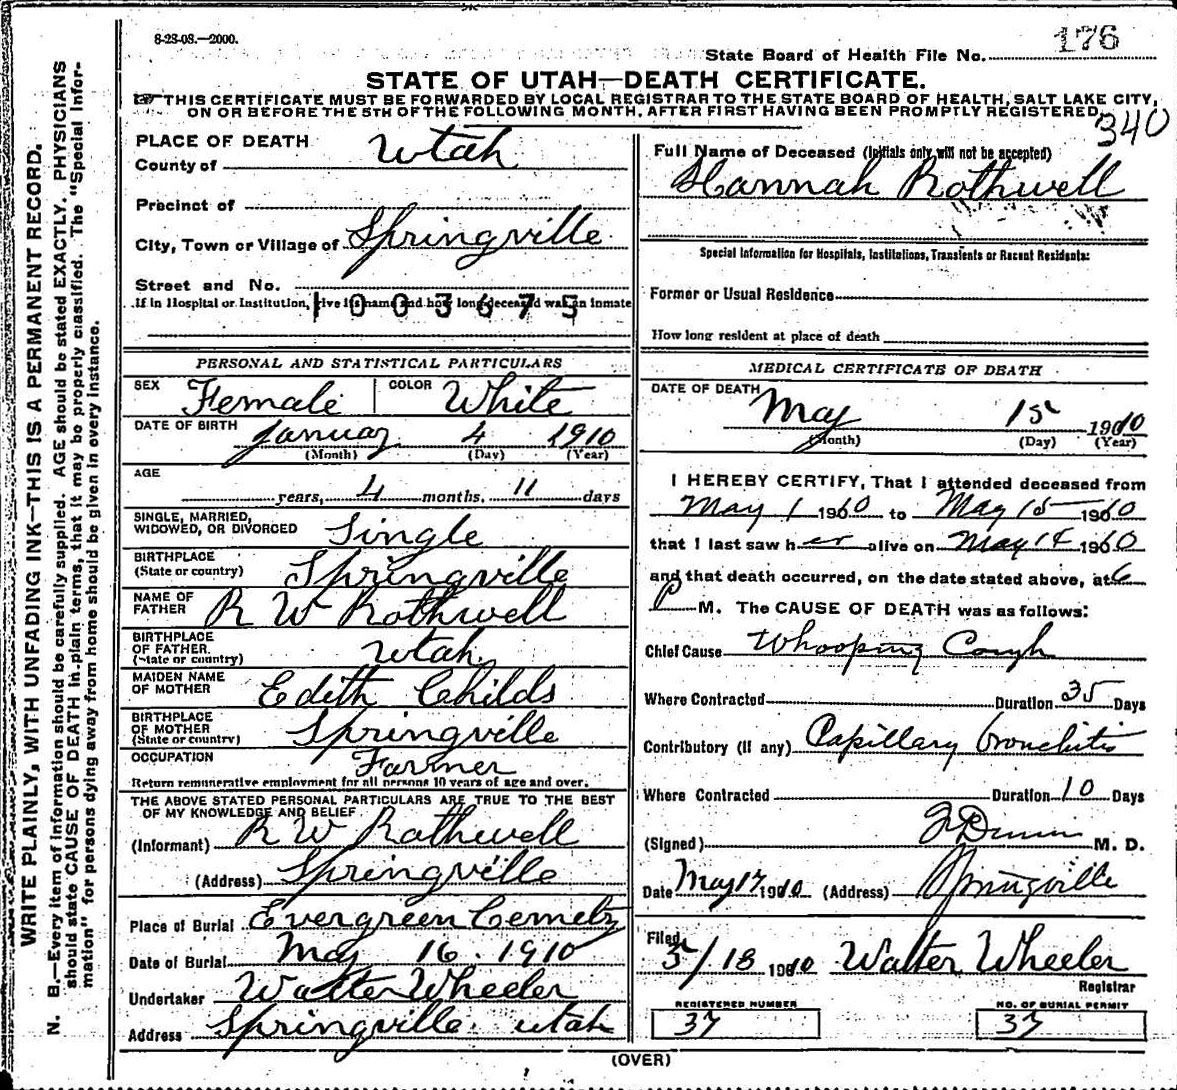 8-23-08.—2000.
State Board of Health File No. 176
STATE OF UTAH—DEATH CERTIFICATE.
THIS CERTIFICATE MUST BE FORWARDED BY LOCAL REGISTRAR TO THE STATE BOARD OF HEALTH, SALT LAKE CITY,
ON OR BEFORE THE 5TH OF THE FOLLOWING MONTH, AFTER FIRST HAVING BEEN PROMPTLY REGISTERED.
340
PLACE OF DEATH
County of Utah
Precinct of
City, Town or Village of Springville
Street and No.
If in Hospital or Institution, give its name and how long deceased was an inmate
1003675
PERSONAL AND STATISTICAL PARTICULARS
SEX Female COLOR White
DATE OF BIRTH January 4 1910
(Month) (Day) (Year)
AGE
years, 4 months, 11 days
SINGLE, MARRIED,
WIDOWED, OR DIVORCED Single
BIRTHPLACE
(State or country) Springville
NAME OF
FATHER R W Rothwell
BIRTHPLACE
OF FATHER.
(State or country) Utah
MAIDEN NAME
OF MOTHER Edith Childs
BIRTHPLACE
OF MOTHER
(State or country) Springville
OCCUPATION Farmer
Return remunerative employment for all persons 10 years of age and over.
THE ABOVE STATED PERSONAL PARTICULARS ARE TRUE TO THE BEST
OF MY KNOWLEDGE AND BELIEF
(Informant) R W Rothwell
(Address) Springville
Place of Burial Evergreen Cemetry
Date of Burial May 16. 1910
Undertaker Walter Wheeler
Address Springville. Utah
Full Name of Deceased (Initials only will not be accepted)
Hannah Rothwell
Special Information for Hospitals, Institutions, Transients or Recent Residents:
Former or Usual Residence
How long resident at place of death
MEDICAL CERTIFICATE OF DEATH
DATE OF DEATH
May 15 1910
(Month) (Day) (Year)
I HEREBY CERTIFY, That I attended deceased from
May 1 1910 to May 15 1910
that I last saw her alive on May 14 1910
and that death occurred, on the date stated above, at 6
P M. The CAUSE OF DEATH was as follows:
Chief Cause Whooping Cough
Where Contracted Duration 35 Days
Contributory (if any) Capillary bronchitis
Where Contracted Duration 10 Days
(Signed) Dunn M. D.
Date May 17 1910 (Address) Springville
Filed
5/18 1910 Walter Wheeler
Registrar
REGISTERED NUMBER
37
NO. OF BURIAL PERMIT
37
(OVER)
WRITE PLAINLY, WITH UNFADING INK—THIS IS A PERMANENT RECORD.
N. B.—Every item of information should be carefully supplied. AGE should be stated EXACTLY. PHYSICIANS
should state CAUSE OF DEATH in plain terms, that it may be properly classified. The "Special Infor-
mation" for persons dying away from home should be given in every instance.